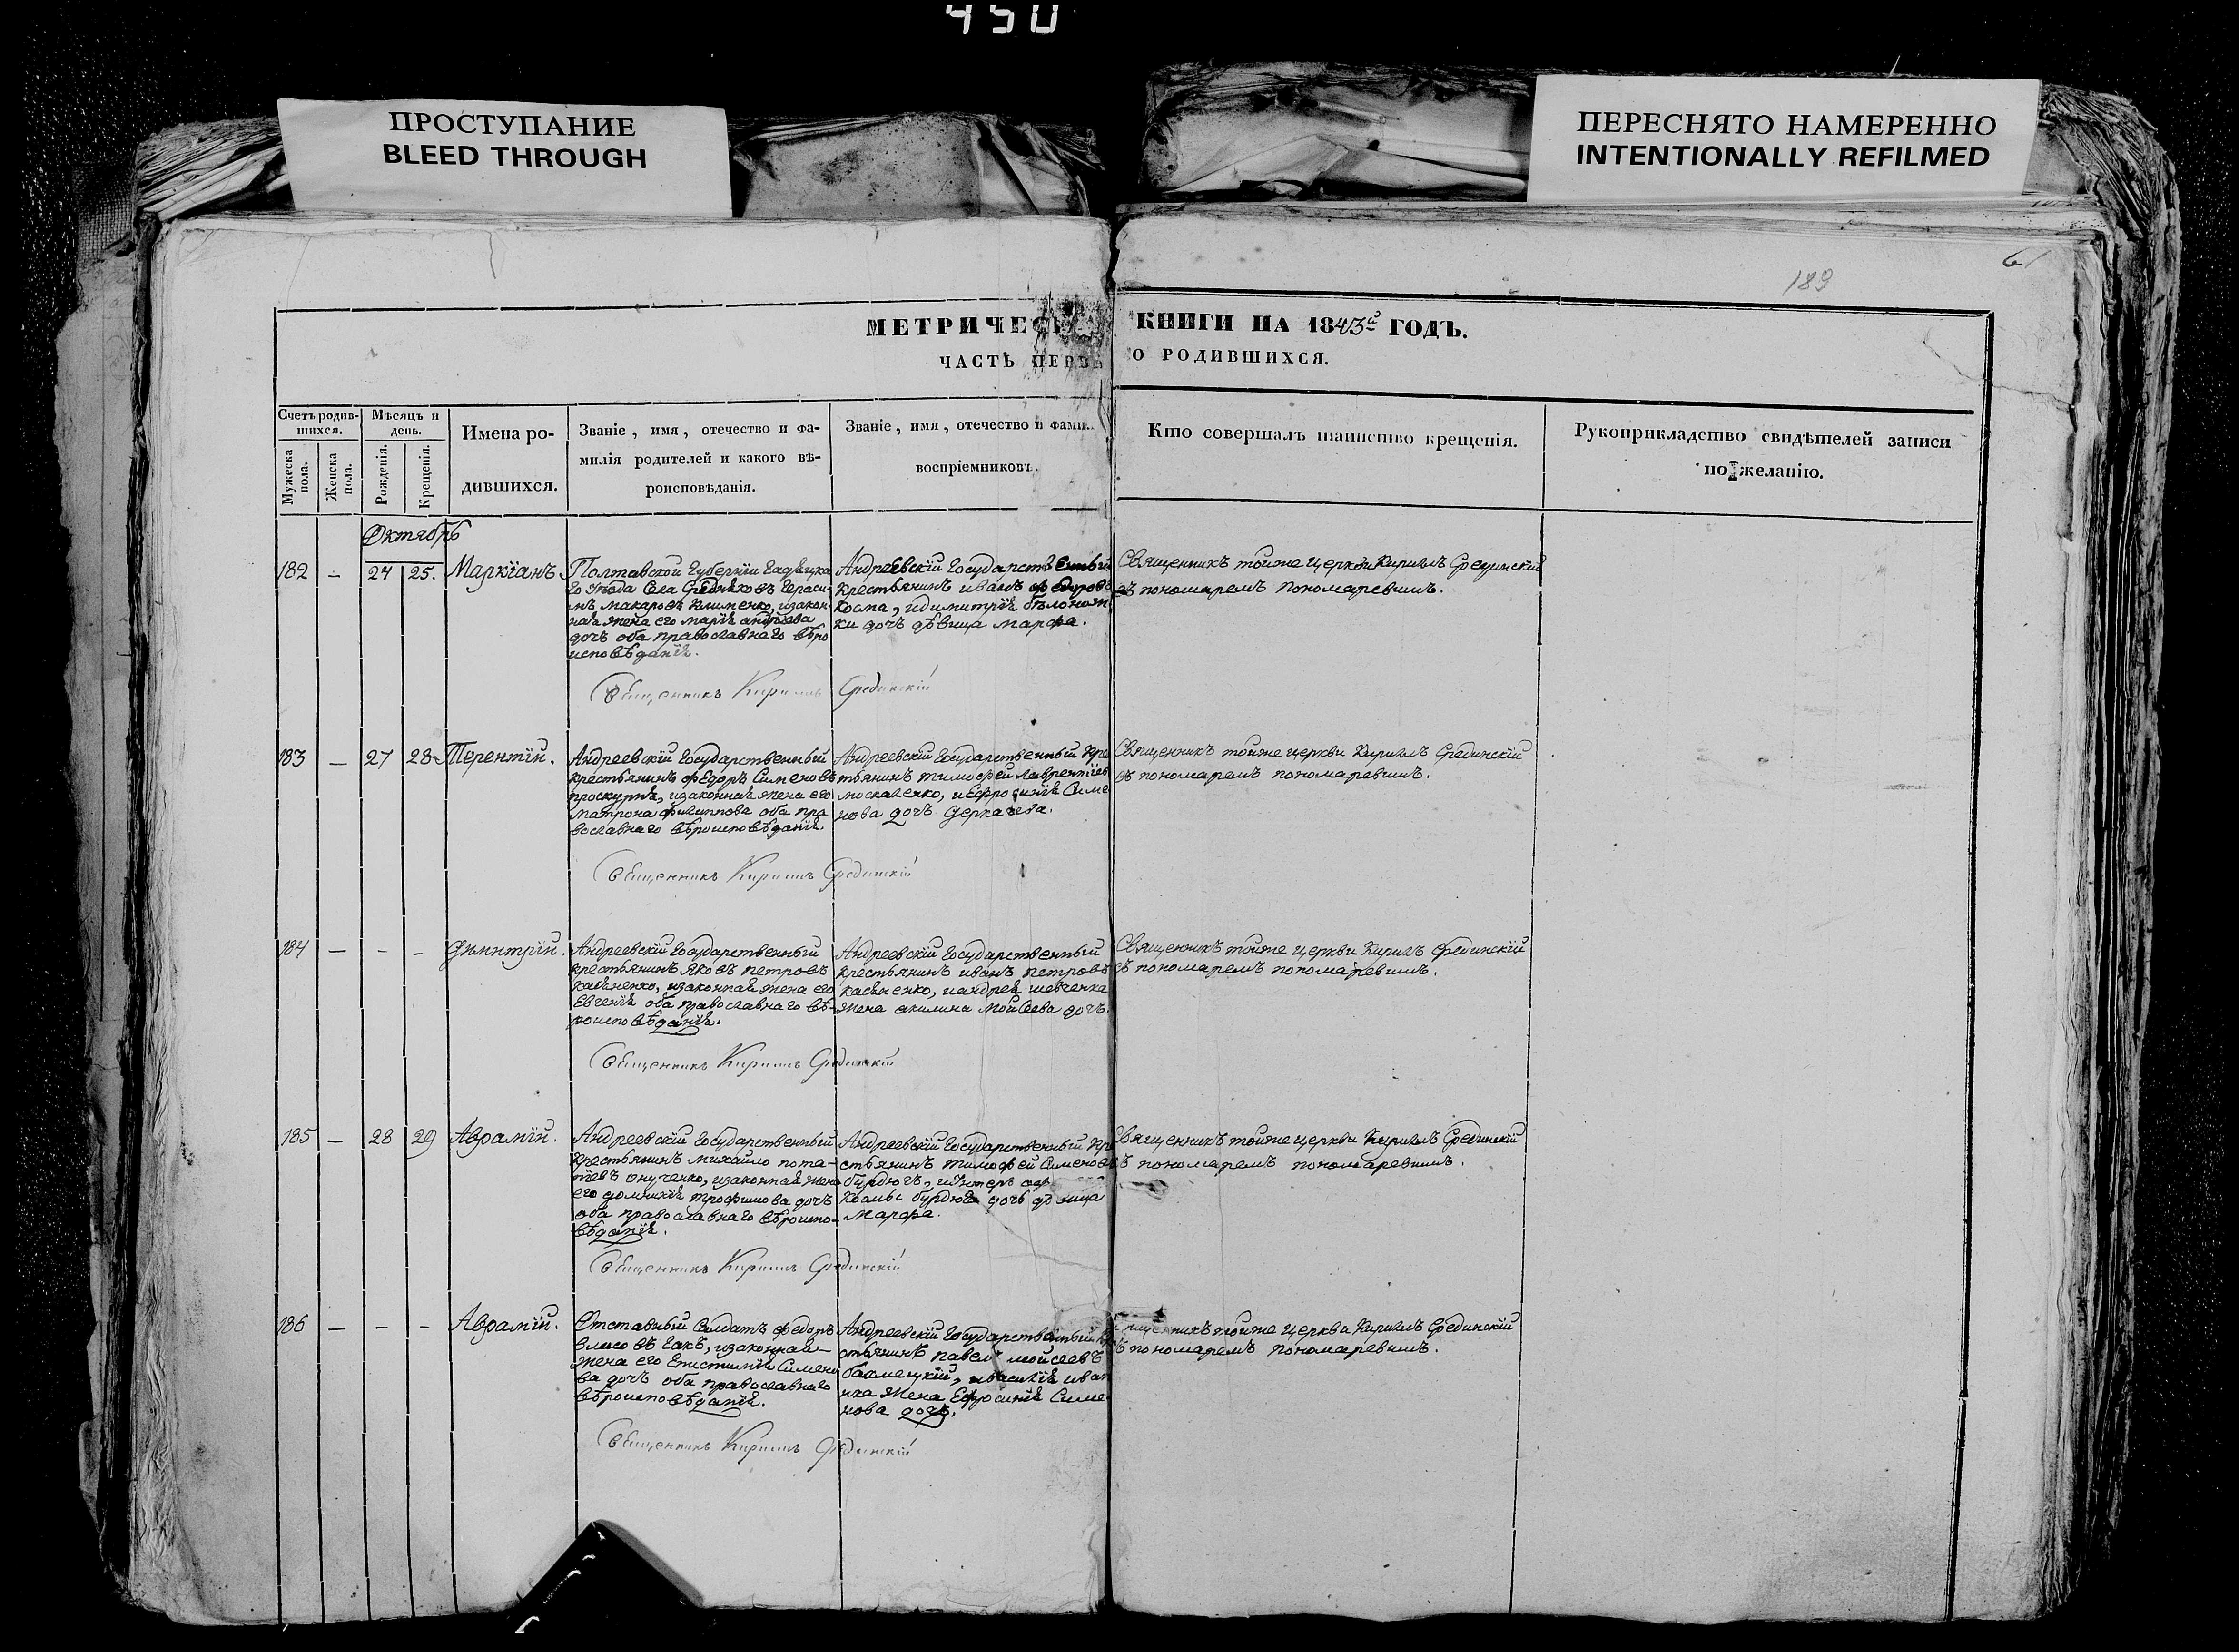 450
ПРОСТУПАНИЕ
BLEED THROUGH
ПЕРЕСНЯТО НАМЕРЕННО
INTENTIONALLY REFILMED
61
189
МЕТРИЧЕС КНИГИ НА 1843й ГОДЪ.
ЧАСТЬ ПЕРВ О РОДИВШИХСЯ.
Счетъ родив-
шихся.
Мужеска пола.
Женска пола.
Мѣсяцъ и
день.
Рожденія.
Крещенія.
Имена ро-
дившихся.
Званіе, имя, отечество и фа-
милія родителей и какого вѣ-
роисповѣданія.
Званіе, имя, отечество и фами
воспріемниковъ.
Кто совершалъ таинство крещенія.
Рукоприкладство свидѣтелей записи
по желанію.
Октябрь
182 — 24 25. Маркіанъ
Полтавской Губерніи Гадяцка
го Уѣзда Села Герасі-
мъ Макаровъ Клименко, изакон-
ная жена его Марія Андреева
дочь оба православнаго вѣро
исповѣданія.
Андреевскій Государственный
крестьянинъ Иванъ Федоровъ
Косма, идимитрія
ки дочь дѣвица Марфа.
Священникъ тойже церкви Кириллъ Срединскій
съ пономаремъ Пономаревимъ.
Священникъ Кириллъ Срединскій
183 — 27 28 Терентій.
Андреевскій Государственный
крестьянинъ Федоръ Сименовъ
проскурня, изаконная жена его
Матрона Филиппова оба пра
вославнаго вѣроисповѣданія.
Андреевскій Государственный кре
стьянинъ тимофей Лаврентіев
москаленко, и Ефросинія Симе
нова дочь Деркачева.
Священникъ тойже церкви Кириллъ Срединскій
съ пономаремъ пономаревимъ.
Священникъ Кириллъ Срединскій
184 — - - Димитрій.
Андреевскій Государственный
крестьянинъ Яковъ петровъ
Касяненко, изаконная жена его
Евгенія оба православнаго вѣ-
роисповѣданія.
Андреевскій Государственный
крестьянинъ иванъ петровъ
касяненко, иандрея шевченка
жена акилина Мойсеева дочь.
Священникъ тойже церкви Кириллъ Срединскій
съ пономаремъ пономаревимъ.
Священникъ Кириллъ Срединскій
185 — 28 29 Аврамій.
Андреевскій Государственный
Крестьянинъ михайло пота-
піевъ онученко, изаконная жена
его домникія трофимова дочь
оба православнаго вѣроиспо-
вѣданія.
Андреевскій Государственный кр
стьянинъ тимофей Сименовъ
бурдюгъ, иУнтеръ оф
бурдюга дочь дѣвица
Марфа.
Священникъ тойже церкви Кириллъ Срединскій
съ пономаремъ пономаревимъ.
Священникъ Кириллъ Срединскій
186 — - - Аврамій.
Отставный Салдатъ федоръ
изаконная—
жена его Епистимія Симено
ва дочь оба православнаго
вѣроисповѣданія.
Андреевскій Государственный кр
стьянинъ павелъ мойсеевъ
ивасилія иван
жена Ефросинія Симе
нова дочь.
тойже церкви Кириллъ Срединскій
съ пономаремъ пономаревимъ.
Священникъ Кириллъ Срединскій